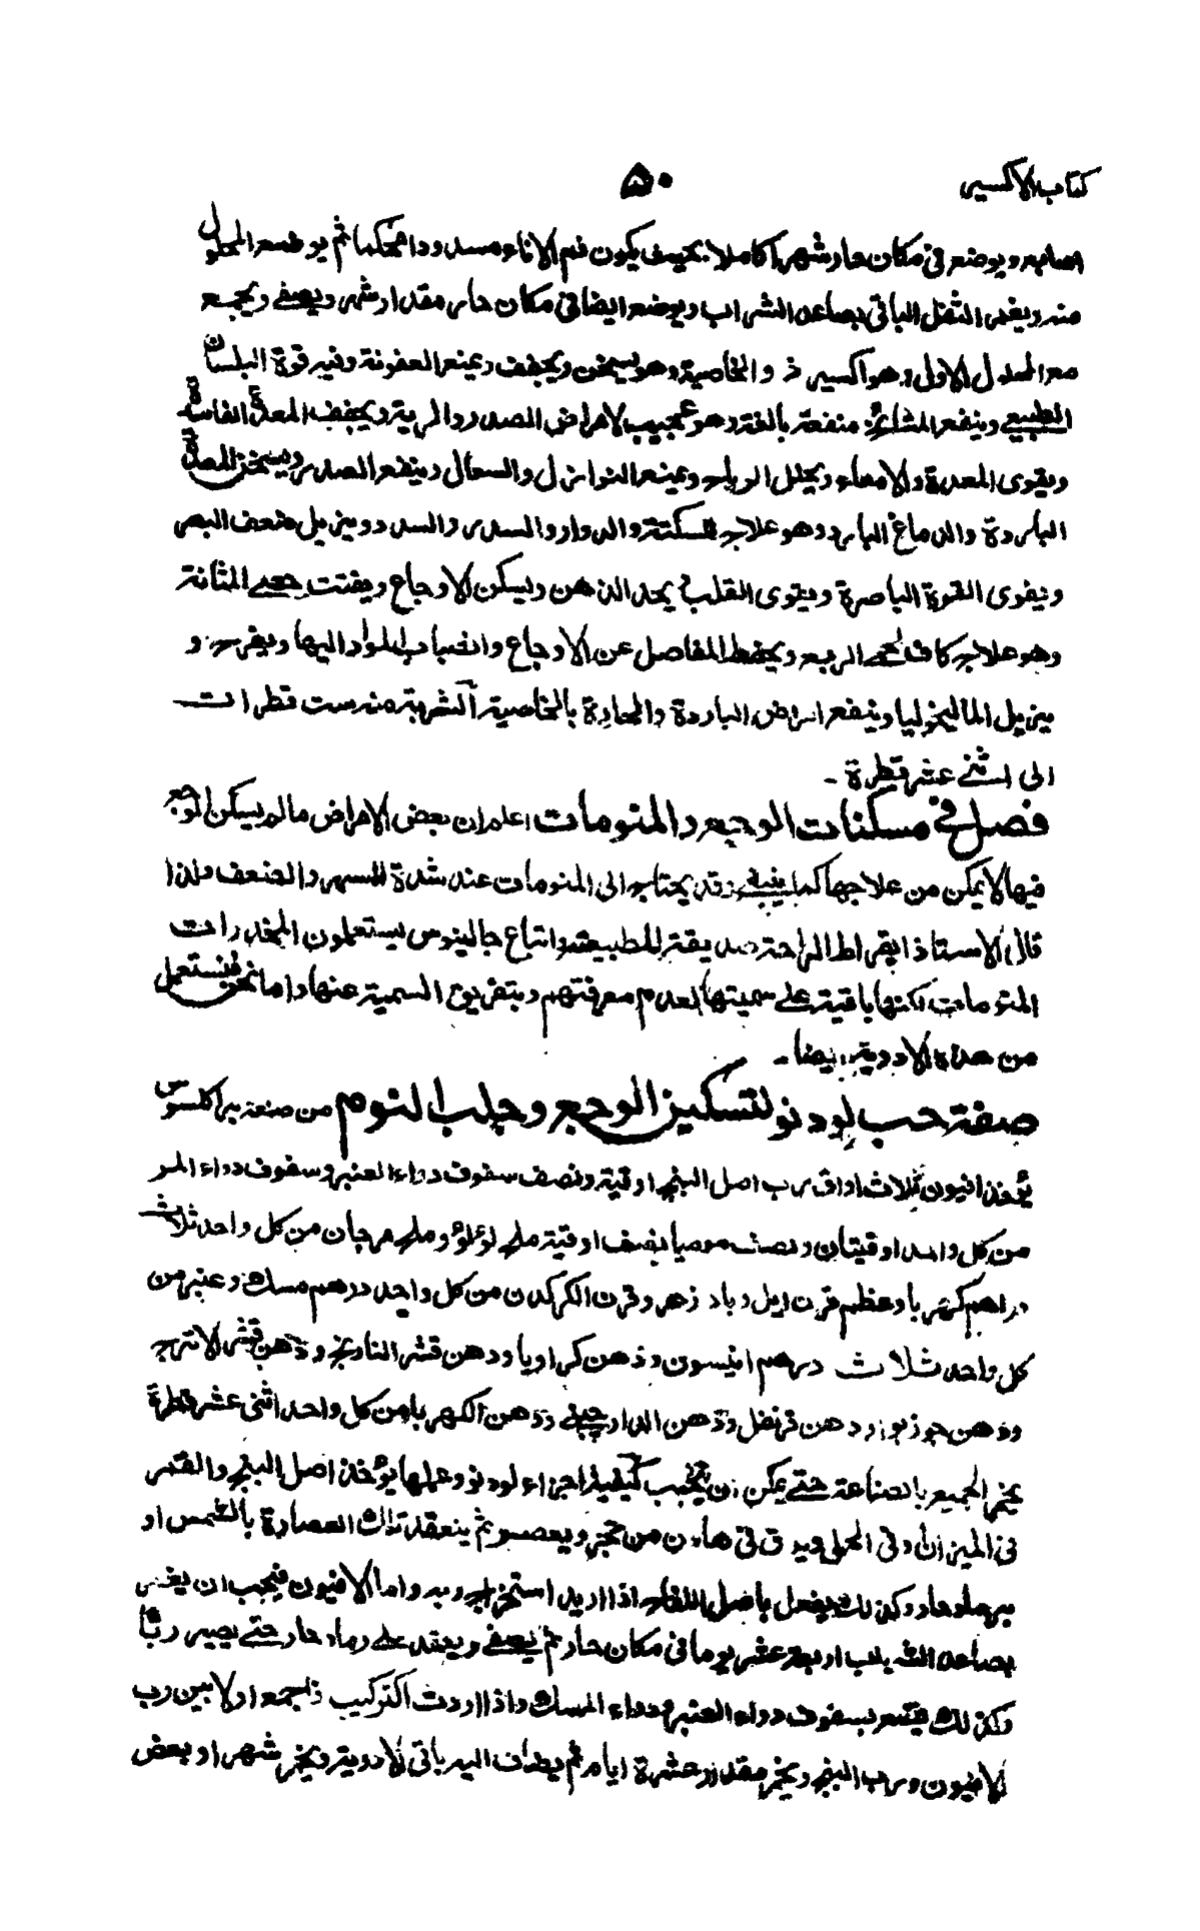 كتاب الاكسير ٥٠
اصابع ويوضع فى مكان حار شهرا كاملا بحيث يكون فم الاناء مسدودا محكما ثم يوضع المحلول
منه ويغمر الثفل الباقى بصاعد الشراب ويوضع ايضا فى مكان حار مقدار شهر ويصفے ويجمع
مع المحلول الاول وهو اكسير ذو الخاصية وهو يسخن ويجفف ويمنع العفونة وفيه قوة البلسان
الطبيعے وينفع المشائخ منفعة بالغة وهو عجيب لامراض الصدر والرية ويجفف المعدة الفاسدة
ويقوى المعدة والامعاء ويحلل الرياح ويمنع النوازل والسعال وينفع الصدر ويسخن المعدة
الباردة والدماغ البارد وهو علاج للسكتة والدوار والسدر والسدد ويزيل ضعف البصر
ويقوى القوة الباصرة ويقوى القلب يحد الذهن ويسكن الاوجاع ويفتت حصے المثانة
وهو علاج كاف لحمى الربع ويحفظ المفاصل عن الاوجاع وانصباب المواد اليها ويفرح و
يزيل الماليخوليا وينفع امراض الباردة والحارة بالخاصية الشربة منه ست قطرات
الى اثنے عشر قطرة
فصل فى مسكنات الوجع والمنومات اعلم ان بعض الامراض ما لم يسكن الوجع
فيها لا يمكن من علاجها كما ينبغے وقد يحتاج الى المنومات عند شدة السهر والضعف ولذا
قال الاستاذ ابقراط الراحة صديقة للطبيعة واتباع جالينوس يستعملون المخدرات
المنومات لكنها باقية علے سميتها لعدم معرفتهم بتفريق السمية عنها واما نحن فنستعمل
من هذه الادوية ايضا
صفة حب لودنو لتسكين الوجع وجلب النوم من صنعة براكلسوس
يؤخذ افيون ثلاث اواق رب اصل البنج اوقية ونصف سفوف دواء العنبر وسفوف دواء المسك
من كل واحد اوقيتان ونصف موميا نصف اوقية ملح لؤلؤ وملح مرجان من كل واحد ثلاث
دراهم كهربا وعظم قرن ايل وباد زهر وقرن الكركدن من كل واحد درهم مسك وعنبر من
كل واحد ثلاث درهم انيسون ودهن كراويا ودهن قشر النارنج ودهن قشر الاترج
ودهن جوزبوا ودهن قرنفل ودهن الدارچينے ودهن الكهربا من كل واحد اثنى عشر قطرة
يخمر الجميع بالصناعة حتے يمكن ان يحبب كيفية اجزاء لودنو وعملها يؤخذ اصل البنج والقمر
فى الميزان وفى الحمل ويدق فى هاون من حجر ويعصر ثم ينعقد تلك العصارة بالشمس او
برماد حار وكذلك يفعل باصل اللفاح اذا اريد استخراج ربه واما الافيون فيجب ان يغمس
بصاعد الشراب اربعة عشر يوما فى مكان حار ثم يصفے ويعقد علے رماد حار حتے يصير ربًا
وكذلك يصنع بسفوف دواء العنبر ودواء المسك واذا اردت التركيب فاجمع اولا بين رب
الافيون ورب البنج ويخمر مقدار عشرة ايام ثم يضاف اليه باقى الادوية ويخمر شهر او بعض